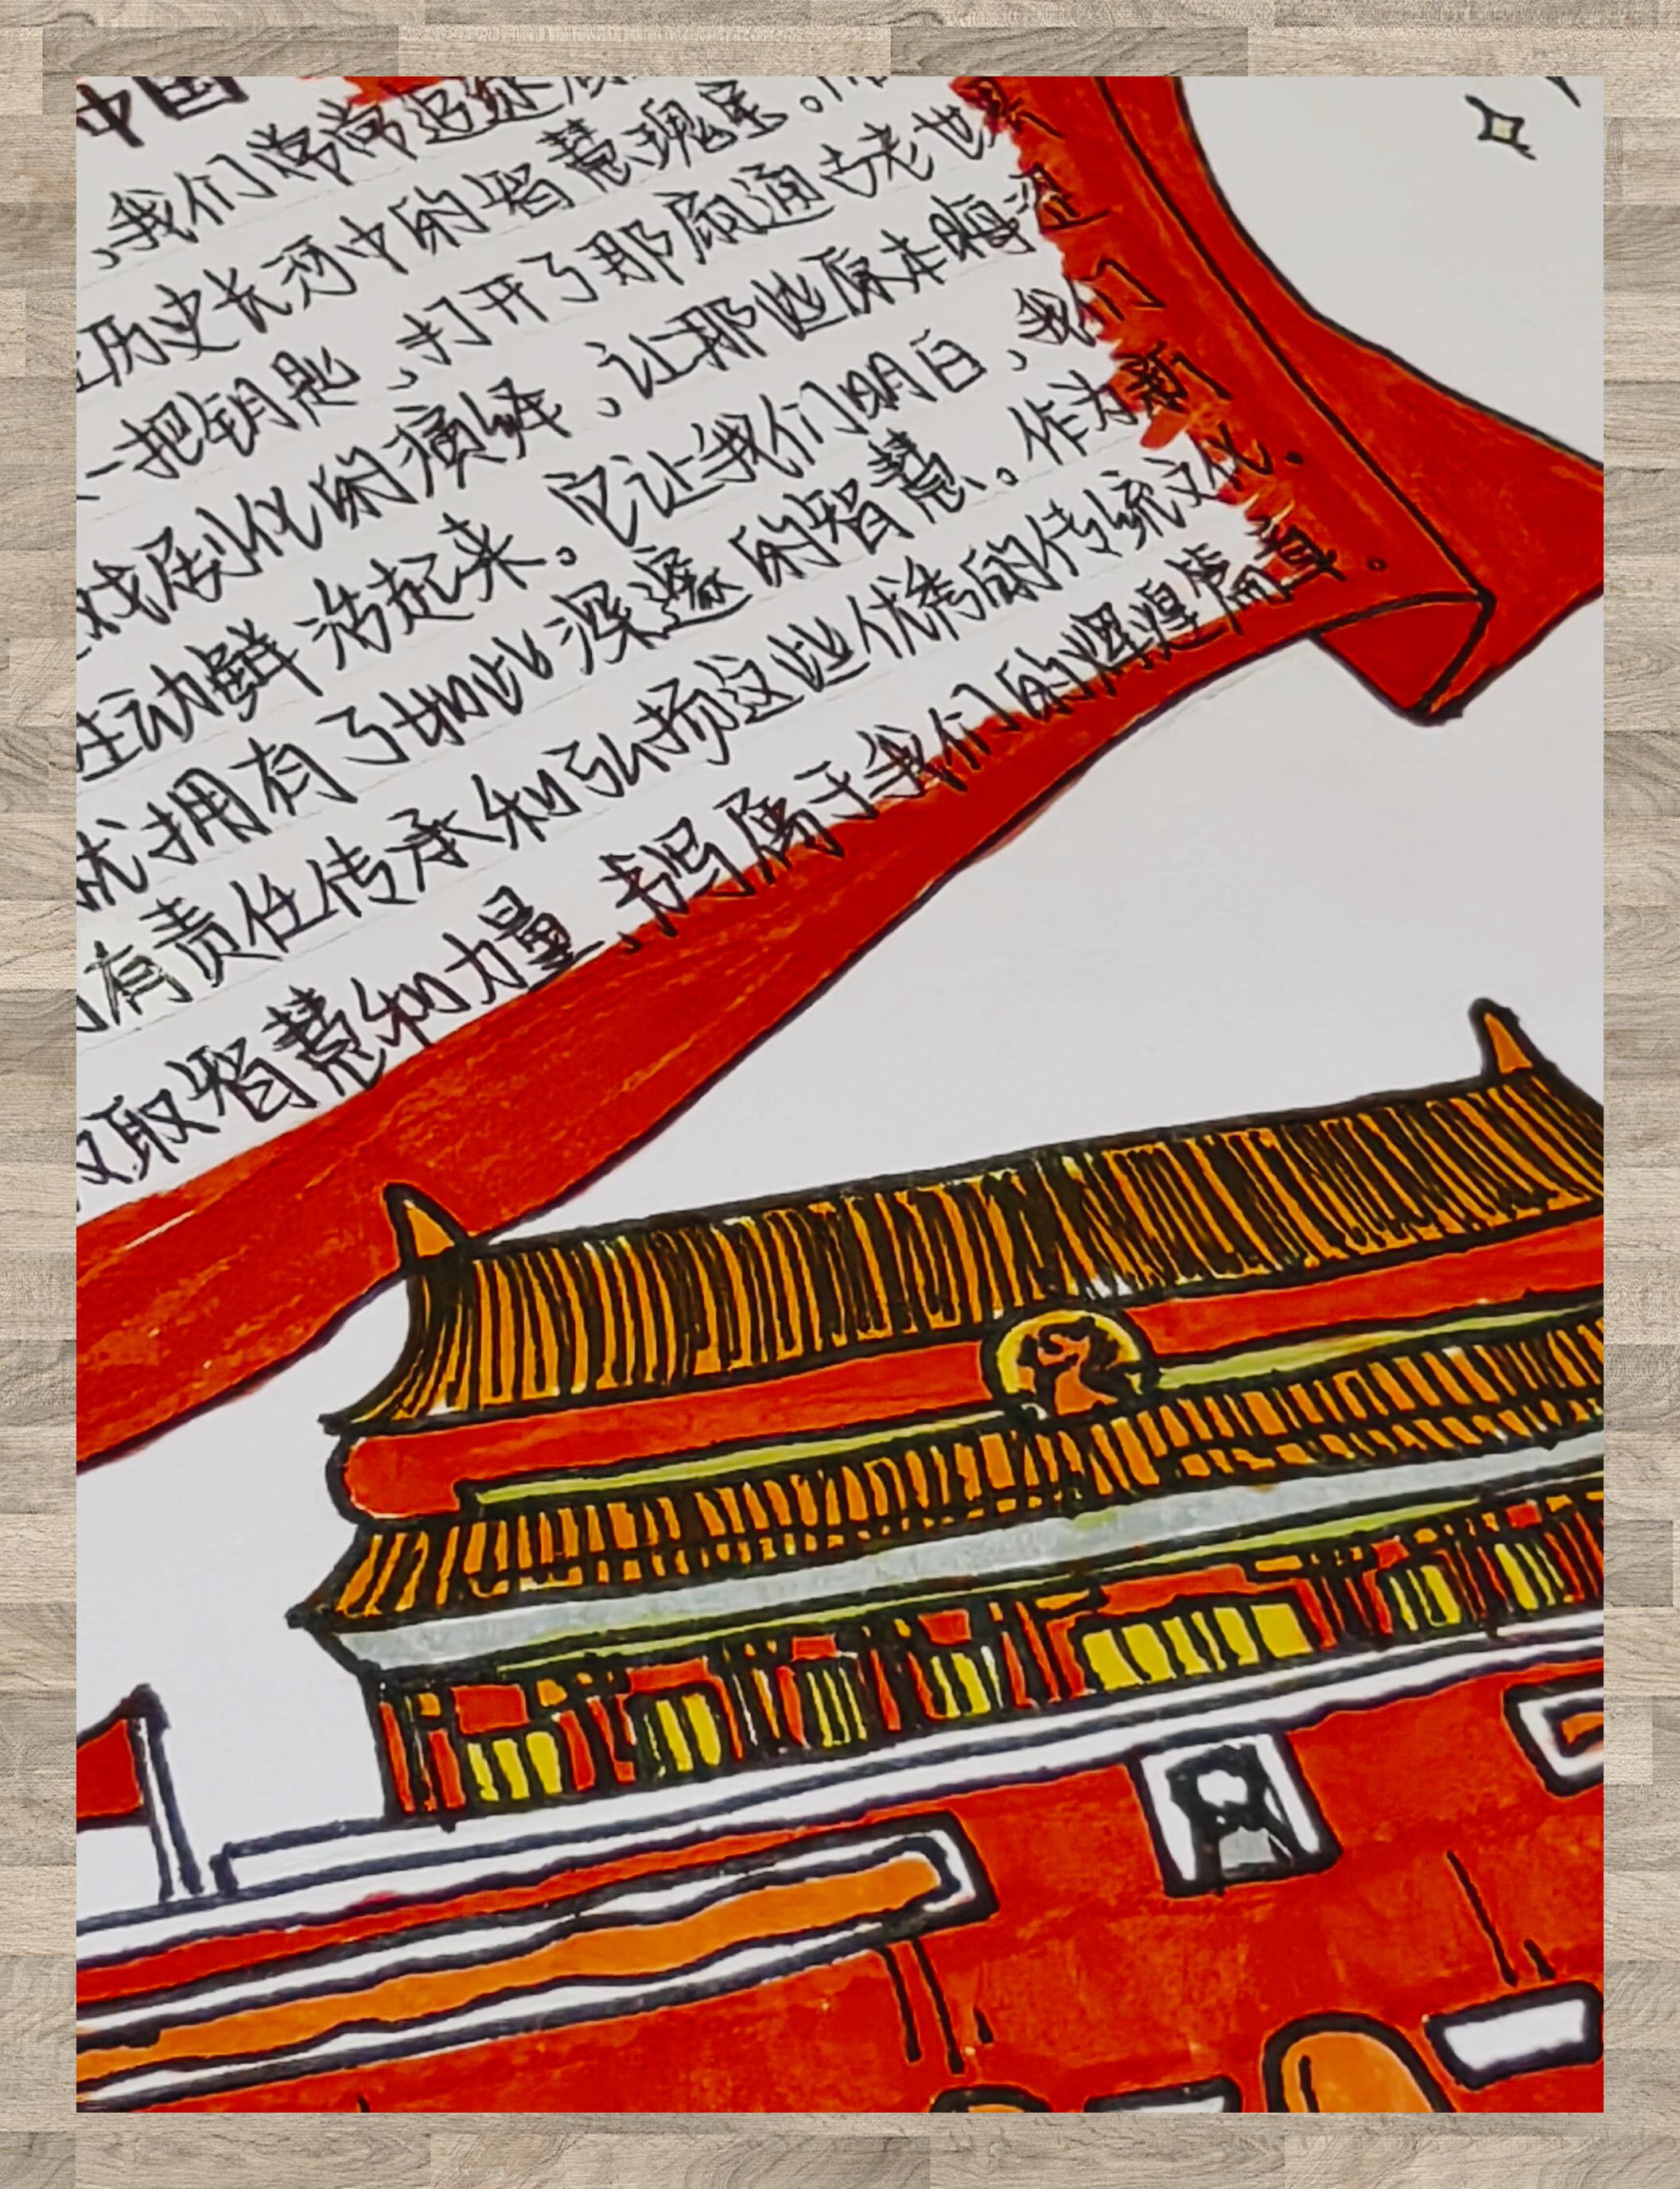 中国
,我们常常追逐
历史长河中的智慧瑰宝。
一把钥匙,打开了那扇通古老世界
戏剧化的演绎,让那些原本晦涩
生动鲜活起来。它让我们明白,我们
就拥有了如此深邃的智慧。作为新
有责任传承和弘扬这些优秀的传统文化.
取智慧和力量,书写属于我们的辉煌篇章.